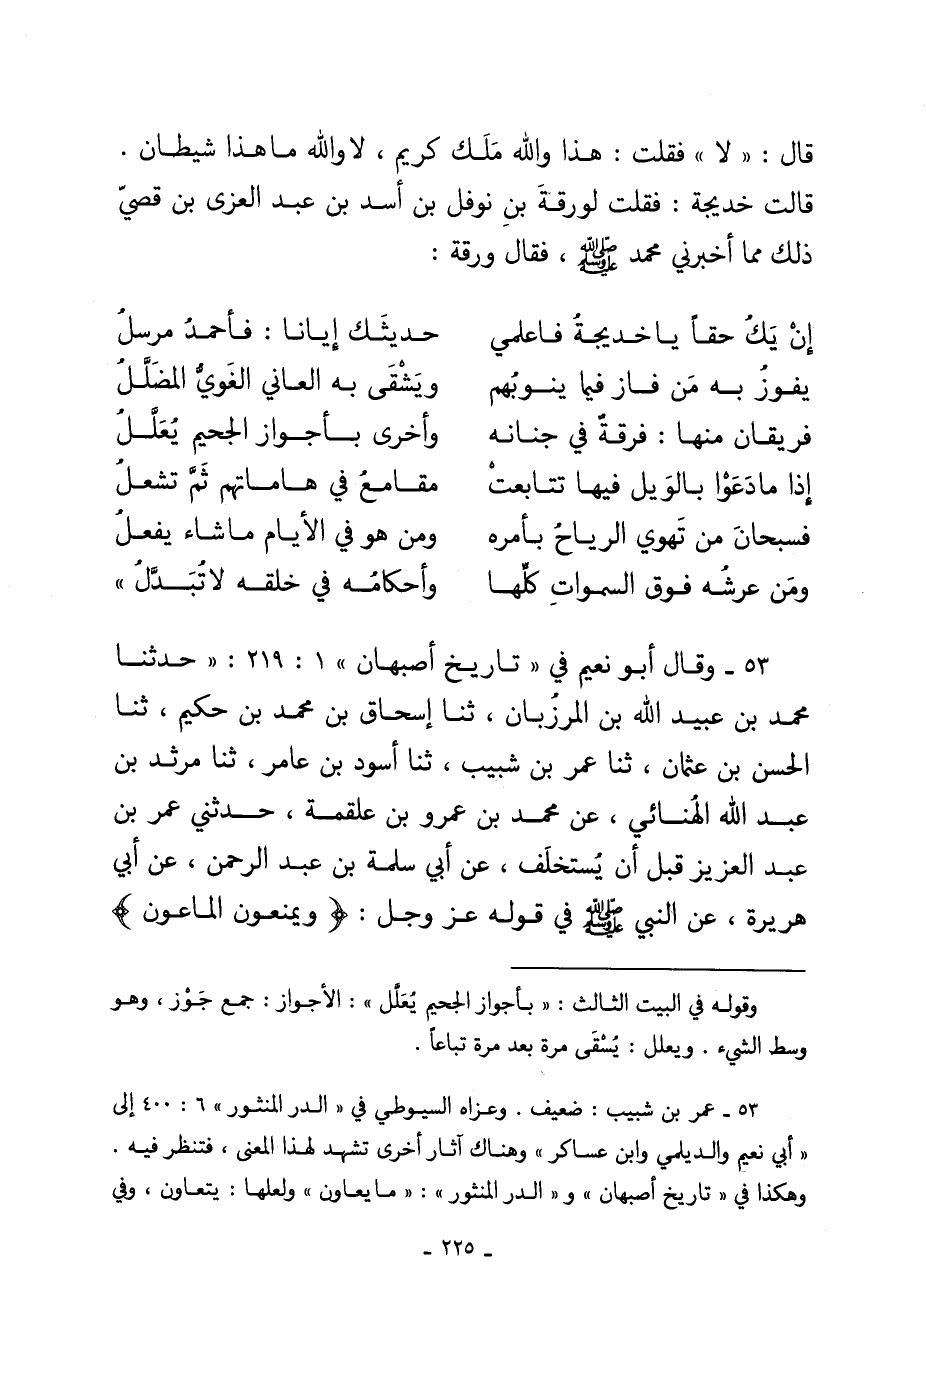 قال : « لا » فقلت : هذا والله مَلَك كريم ، لا والله ما هذا شيطان .
قالت خديجة : فقلت لورقةَ بنِ نوفل بن أسد بن عبد العزى بن قصيّ
ذلك مما أخبرني محمد ﷺ ، فقال ورقة :
إنْ يَكُ حقاً يا خديجةُ فاعلمي حديثَك إيانا : فأحمدُ مرسلُ
يفوزُ به مَن فاز فيما ينوبُهم ويَشْقَى به العاني الغَويُّ المضَلَّلُ
فريقان منها : فرقةٌ في جنانه وأخرى بأجواز الجحيم يُعَلَّلُ
إذا مادَعَوْا بالوَيل فيها تتابعتْ مقامعُ في هاماتهم ثَمَّ تشعلُ
فسبحانَ من تَهوي الرياحُ بأمره ومن هو في الأيام ماشاء يفعلُ
ومَن عرشُه فوق السمواتِ كلِّها وأحكامُه في خلقه لا تُبَدَّلُ »
٥٣ ـ وقال أبو نعيم في « تاريخ أصبهان » ١ : ٢١٩ : « حدثنا
محمد بن عبيد الله بن المرزُبان ، ثنا إسحاق بن محمد بن حكيم ، ثنا
الحسن بن عثمان ، ثنا عمر بن شبيب ، ثنا أسود بن عامر ، ثنا مرثد بن
عبد الله الهُنائي ، عن محمد بن عمرو بن علقمة ، حدثني عمر بن
عبد العزيز قبل أن يُستخلَف ، عن أبي سلمة بن عبد الرحمن ، عن أبي
هريرة ، عن النبي ﷺ في قوله عز وجل : ﴿ ويمنعون الماعون ﴾
وقوله في البيت الثالث : « بأجواز الجحيم يُعَلَّل » : الأجواز : جمع جَوْز ، وهو
وسط الشيء . ويعلل : يُسْقَى مرة بعد مرة تباعاً .
٥٣ ـ عمر بن شبيب : ضعيف . وعزاه السيوطي في « الدر المنثور » ٦ : ٤٠٠ إلى
« أبي نعيم والديلمي وابن عساكر » وهناك آثار أخرى تشهد لهذا المعنى ، فتنظر فيه .
وهكذا في « تاريخ أصبهان » و « الدر المنثور » : « ما يعاون » ولعلها : يتعاون ، وفي
ـ ٢٢٥ ـ